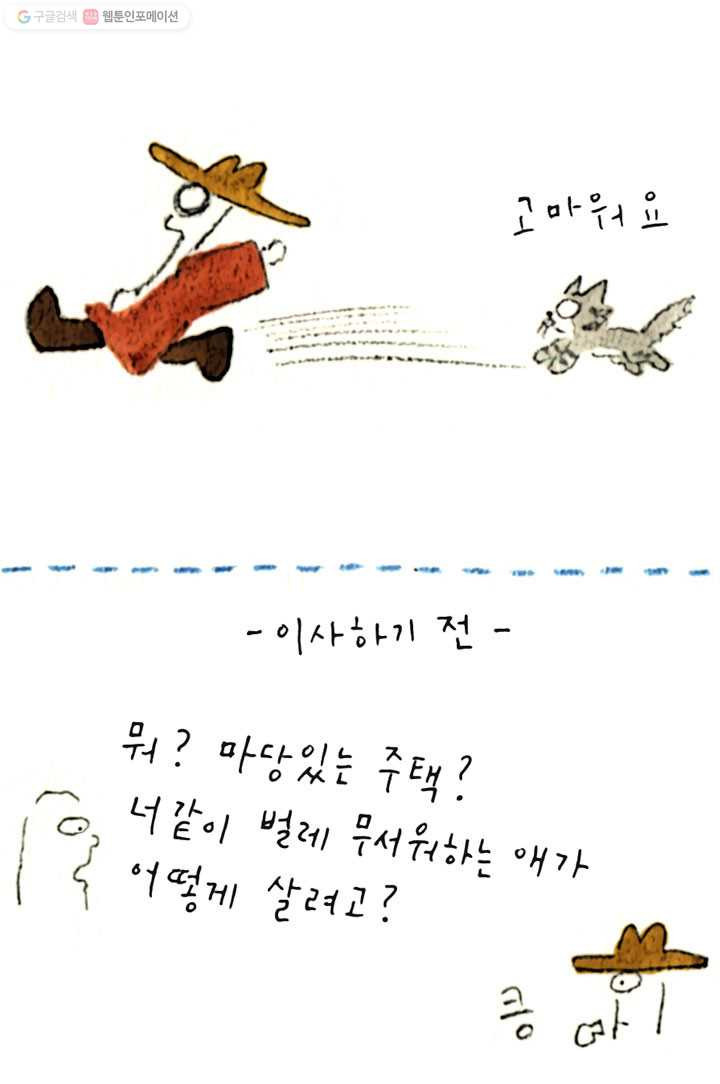 구글검색 웹툰인포메이션
고마워요
- 이사하기 전 -
뭐? 마당있는 주택?
너같이 벌레 무서워하는 애가
어떻게 살려고?
킁